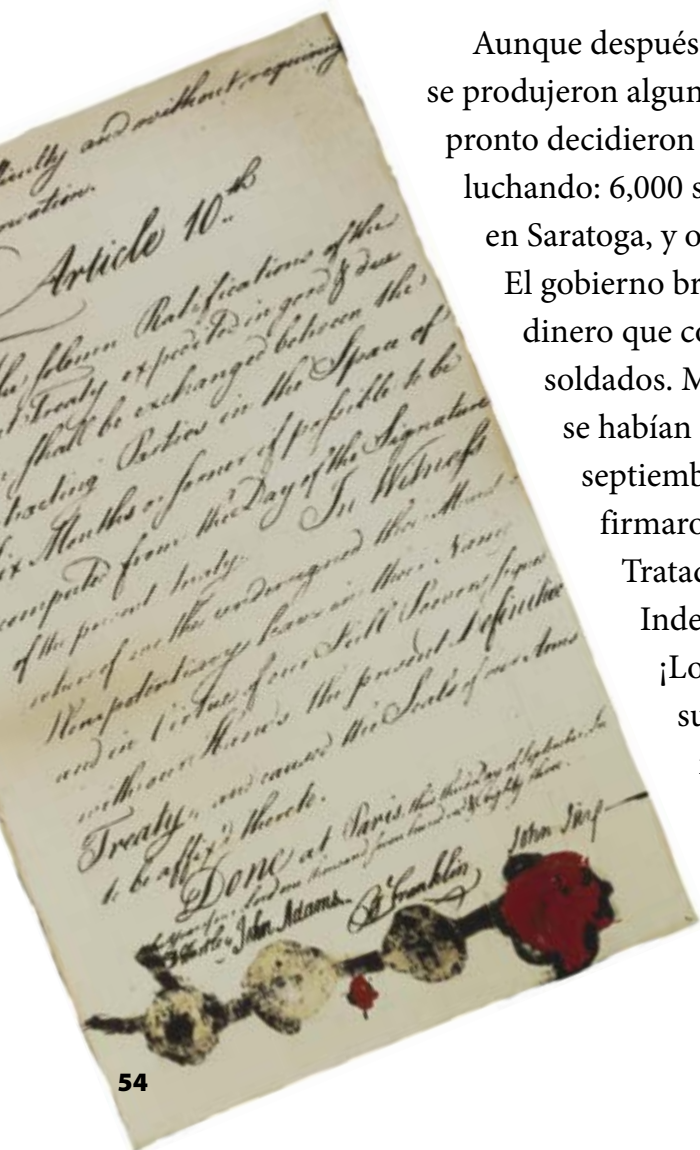 Aunque después
se produjeron algun
pronto decidieron
luchando: 6,000 s
en Saratoga, y o
El gobierno br
dinero que co
soldados. M
se habían
septiemb
firmaro
Tratad
Inde
¡Lo
su
and without requiring
Article 10th
solemn Ratifications of the
Treaty expedited in good & due
shall be exchanged between the
tracting Parties in the Space of
ix Months or sooner if possible to be
computed from the Day of the Signature
of the present Treaty. In Witness
whereof we the undersigned their
Plenipotentiary have in their Name
and in Virtue of our Full Powers signed
with our Hands the present Definitive
Treaty, and caused the Seals of our Arms
to be affix'd thereto.
Done at Paris, this third Day of September In
the Year of our Lord one thousand seven hundred & Eighty three.
Hartley John Adams B Franklin John Jay
54